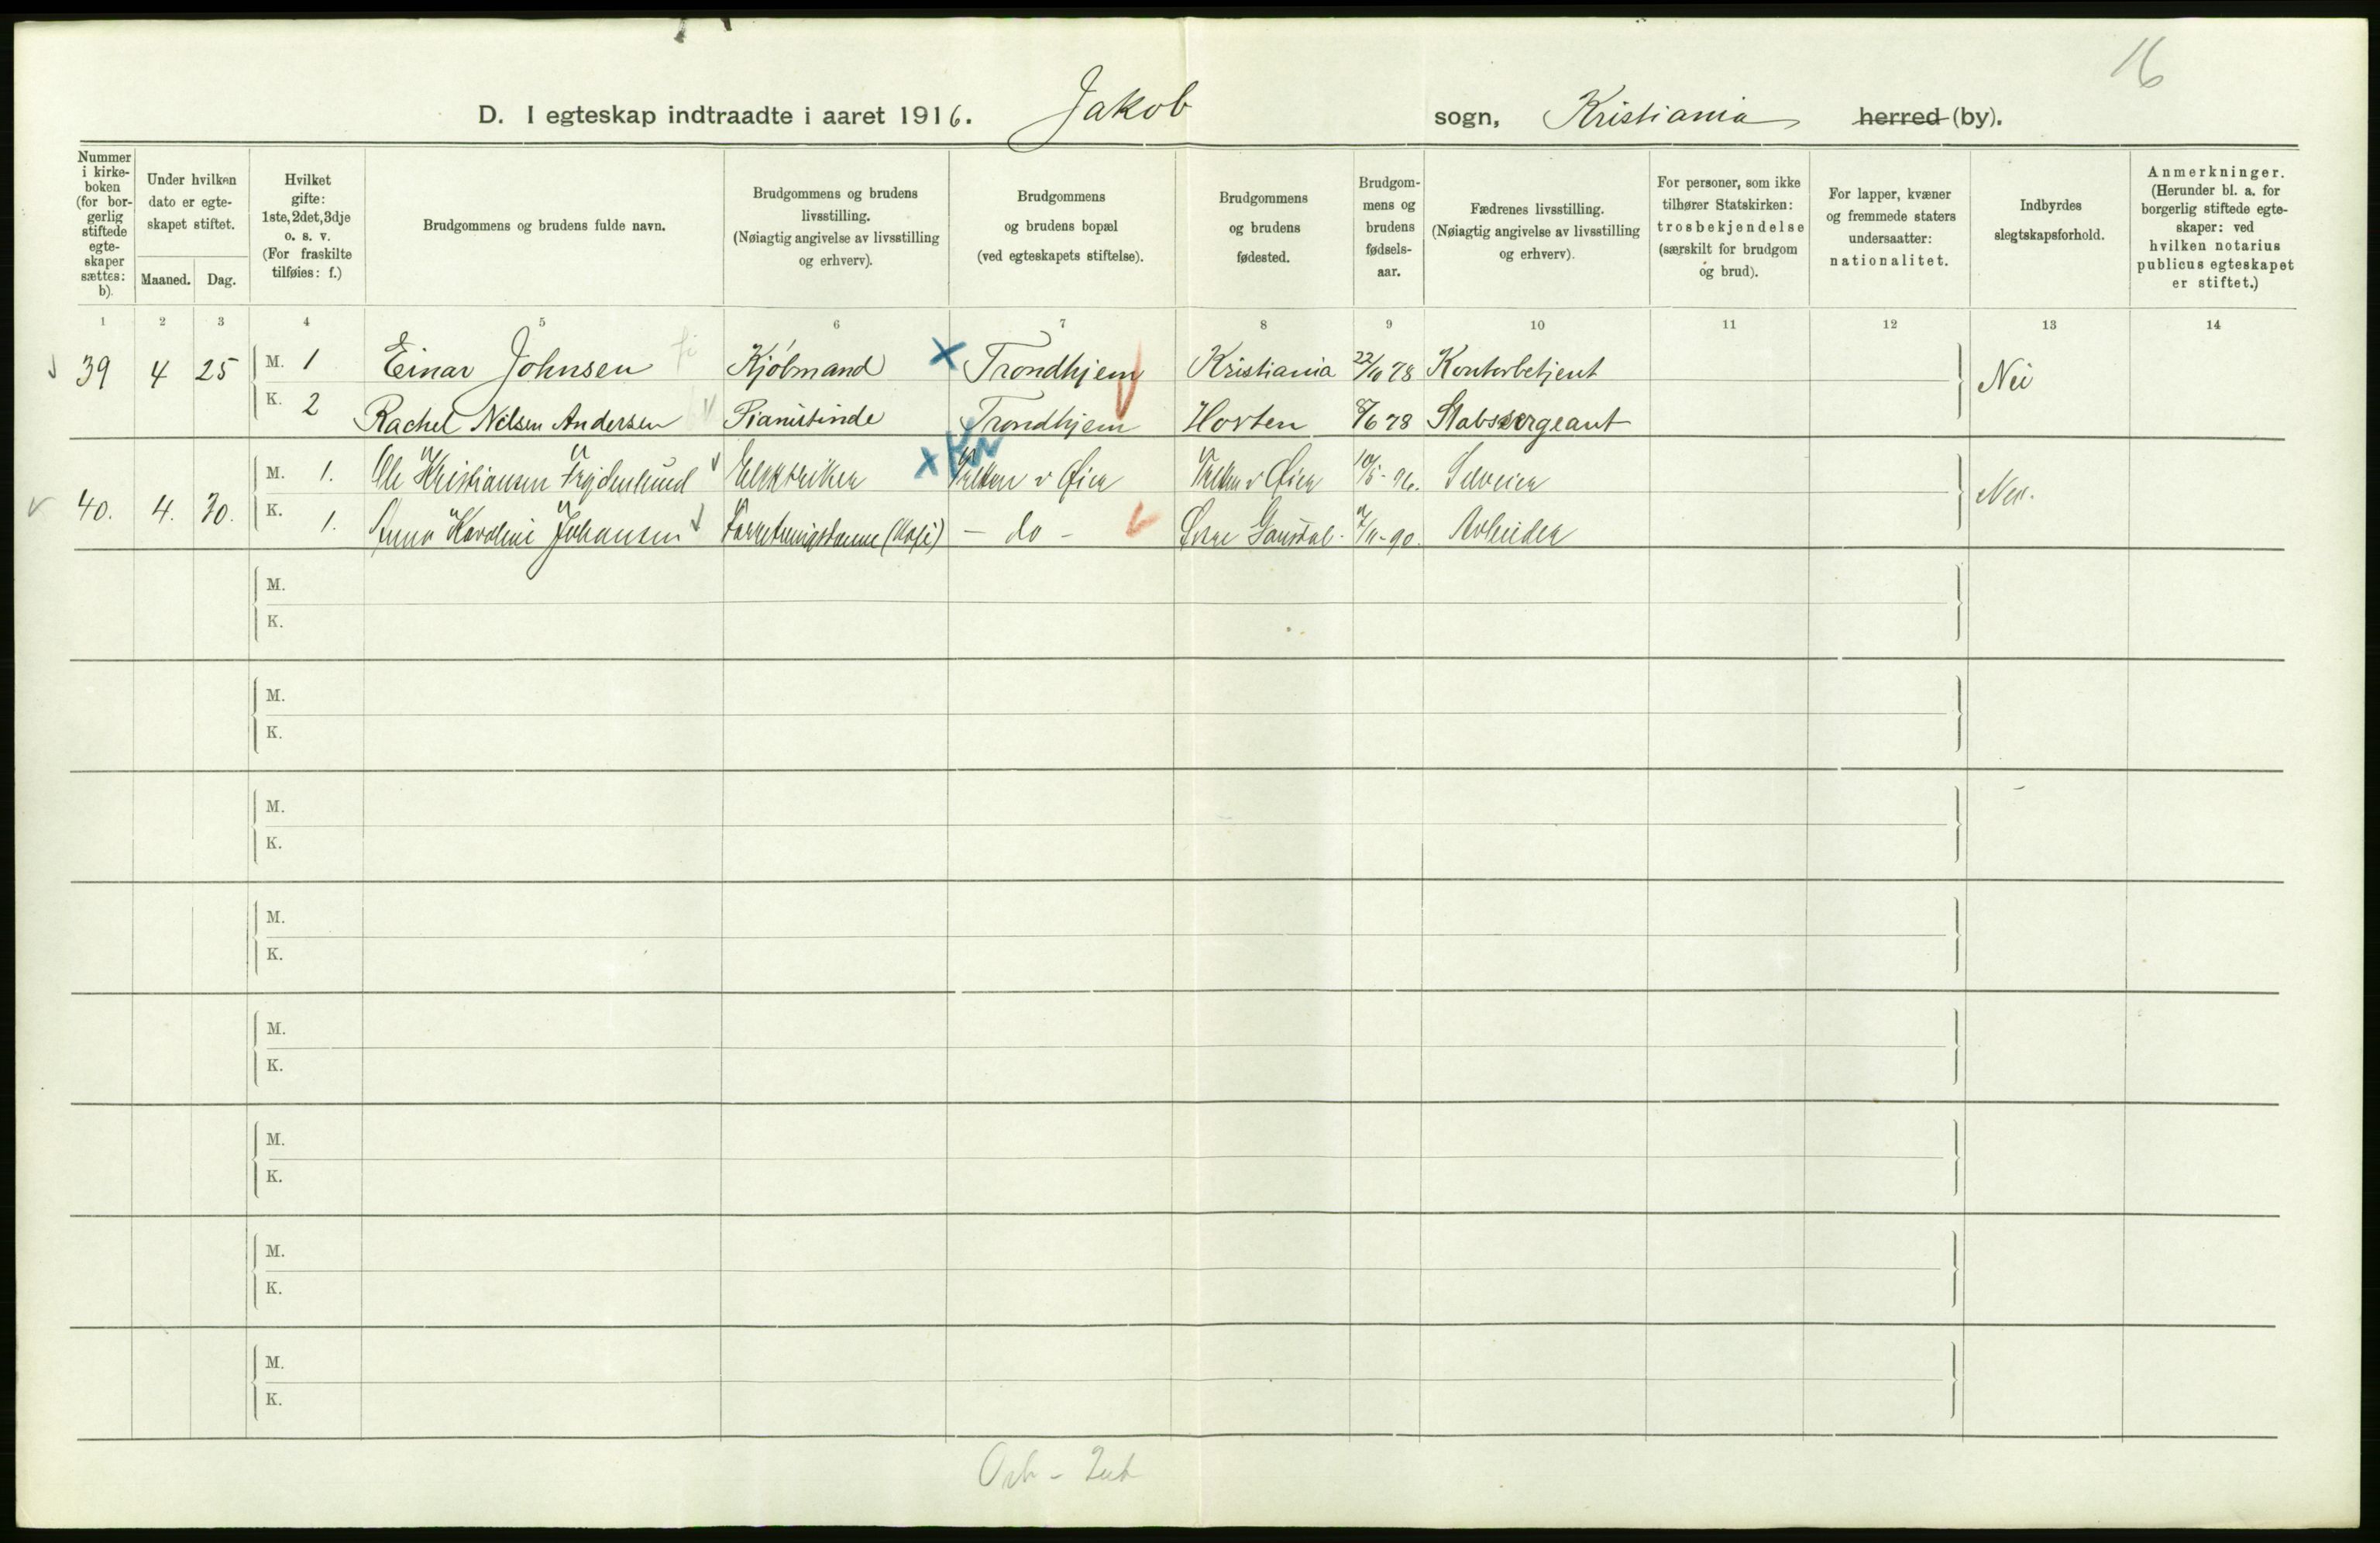 16
D. I egteskap indtraadte i aaret 1916. Jakob sogn, Kristiania herred (by).
Nummer i kirke-boken (for bor-gerlig stiftede egte-skaper sættes: b).
Under hvilken dato er egte-skapet stiftet.
Maaned. Dag.
Hvilket gifte: 1ste, 2det, 3dje o. s. v. (For fraskilte tilføies: f.)
Brudgommens og brudens fulde navn.
Brudgommens og brudens livsstilling. (Nøiagtig angivelse av livsstilling og erhverv).
Brudgommens og brudens bopæl (ved egteskapets stiftelse).
Brudgommens og brudens fødested.
Brudgom-mens og brudens fødsels-aar.
Fædrenes livsstilling. (Nøiagtig angivelse av livsstilling og erhverv).
For personer, som ikke tilhører Statskirken: trosbekjendelse (særskilt for brudgom og brud).
For lapper, kvæner og fremmede staters undersaatter: nationalitet.
Indbyrdes slegtskapsforhold.
Anmerkninger. (Herunder bl. a. for borgerlig stiftede egte-skaper: ved hvilken notarius publicus egteskapet er stiftet.)
1 2 3 4 5 6 7 8 9 10 11 12 13 14
39 4 25 M. 1 Einar Johnsen Kjøbmand Trondhjem Kristiania 22/10 78 Kontorbetjent Nei
K. 2 Rachel Nilsen Andersen Pianistinde Trondhjem Horten 8/6 78 Stabssergeant
40. 4. 30. M. 1. Ole Kristiansen Frydenlund Elektriker v Øier v Øier 10/5 - 96. Selveier Nei.
K. 1. Anna Karoline Johansen Forretningsdame (Kafe) - do - Østre Gausdal. 7/11 - 90. Arbeider
M.
K.
M.
K.
M.
K.
M.
K.
M.
K.
M.
K.
M.
K.
M.
K.